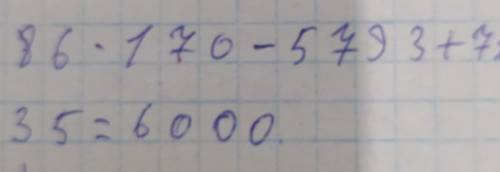 86·170-5793+72
35=6000.